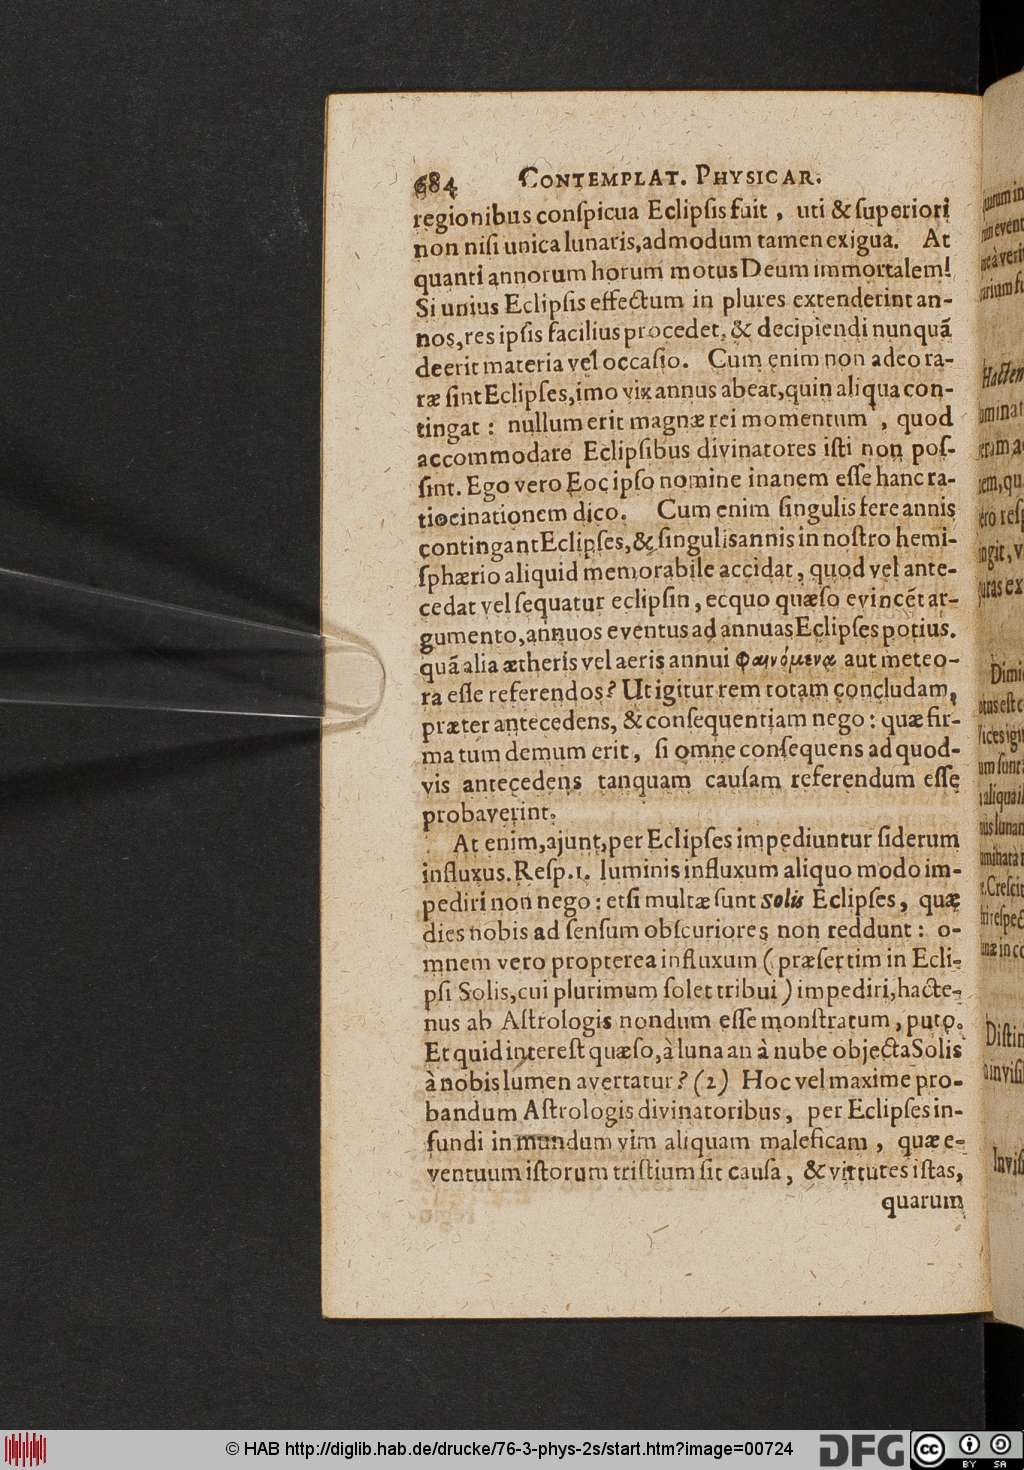 684 CONTEMPLAT. PHYSICAR.
regionibus conſpicua Eclipſis fuit, uti & ſuperiori
non niſi unica lunaris, admodum tamen exigua. At
quanti annorum horum motus Deum immortalem!
Si unius Eclipſis effectum in plures extenderint an-
nos, res ipſis facilius procedet, & decipiendi nunquã
deerit materia vel occaſio. Cum enim non adeo ra-
ræ ſint Eclipſes, imo vix annus abeat, quin aliqua con-
tingat: nullum erit magnæ rei momentum, quod
accommodare Eclipſibus divinatores iſti non poſ-
ſint. Ego vero Eoc ipſo nomine inanem eſſe hanc ra-
tiocinationem dico. Cum enim ſingulis fere annis
contingant Eclipſes, & ſingulis annis in noſtro hemi-
ſphærio aliquid memorabile accidat, quod vel ante-
cedat vel ſequatur eclipſin, ecquo quæſo evincẽt ar-
gumento, annuos eventus ad annuas Eclipſes potius.
quã alia ætheris vel aeris annui φαινόμενα aut meteo-
ra eſſe referendos? Ut igitur rem totam concludam,
præter antecedens, & conſequentiam nego: quæ fir-
ma tum demum erit, ſi omne conſequens ad quod-
vis antecedens tanquam cauſam referendum eſſe
probaverint.
At enim, ajunt, per Eclipſes impediuntur ſiderum
influxus. Reſp. 1. luminis influxum aliquo modo im-
pediri non nego: etſi multæ ſunt Solis Eclipſes, quæ
dies nobis ad ſenſum obſcuriores non reddunt: o-
mnem vero propterea influxum (præſertim in Ecli-
pſi Solis, cui plurimum ſolet tribui) impediri, hacte-
nus ab Aſtrologis nondum eſſe monſtratum, puto.
Et quid intereſt quæſo, à luna an à nube objecta Solis
à nobis lumen avertatur? (2) Hoc vel maxime pro-
bandum Aſtrologis divinatoribus, per Eclipſes in-
fundi in mundum vim aliquam maleficam, quæ e-
ventuum iſtorum triſtium ſit cauſa, & virtutes iſtas,
quarum
© HAB http://diglib.hab.de/drucke/76-3-phys-2s/start.htm?image=00724
DFG
cc BY SA